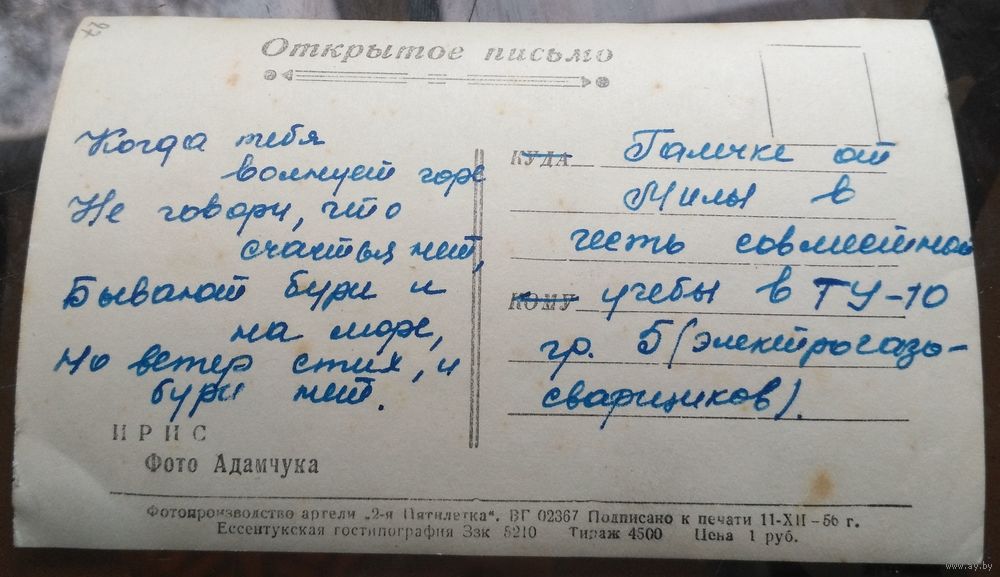 27
Открытое письмо
Когда тебя
волнует горе
Не говори, что
счастья нет,
Бывают бури и
на море,
Но ветер стих, и
бури нет.
ИРИС
Фото Адамчука
КУДА Галечке от
Милы в
честь совместной
КОМУ учебы в ТУ-10
гр. 5 (электрогазо-
сварщиков).
Фотопроизводство артели „2-я Пятилетка“. ВГ 02367 Подписано к печати 11-XII-56 г.
Ессентукская гостипография Ззк 5210 Тираж 4500 Цена 1 руб.
www.ay.by